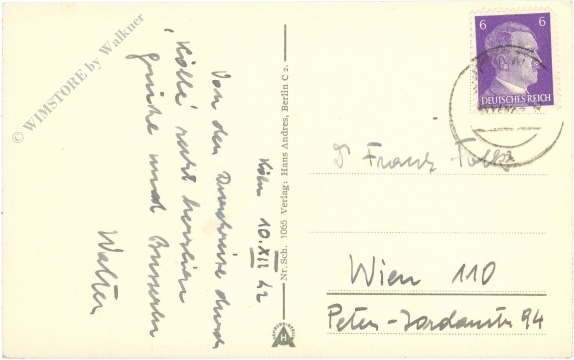 © WIMSTORE by Walkner
Köln 10.XII 42
Von der Durchreise durch
Kölle recht herzliche
Grüße und Busserln
Walter
Nr. Sch. 1065 Verlag: Hans Andres, Berlin C 2.
6 6
DEUTSCHES REICH
Dr Franz
Wien 110
Peter-Jordanstr 94